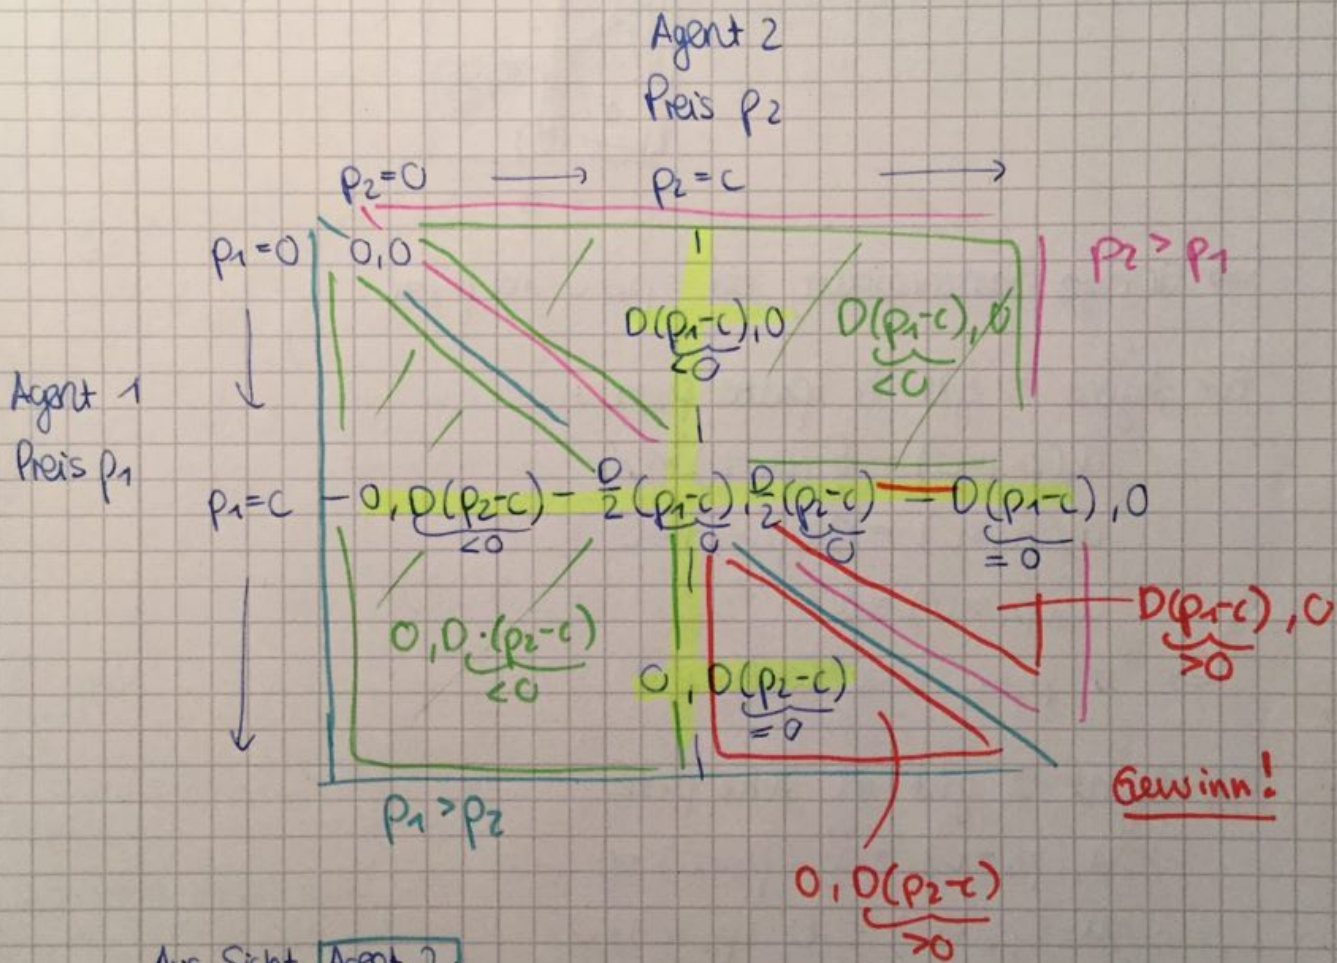 Agent 2
Preis p₂
p₂=0 → p₂=c →
p₁=0 0,0
p₂>p₁
D(p₁-c),0 D(p₁-c),0
<0 <0
Agent 1
Preis p₁
p₁=c - 0, D(p₂-c) - D/2 (p₁-c), D/2 (p₂-c) - D(p₁-c),0
<0 0 0 =0
D(p₁-c),0
>0
0,D·(p₂-c)
<0
0, D(p₂-c)
=0
Gewinn!
p₁>p₂
0, D(p₂-c)
>0
Aus Sicht Agent 2